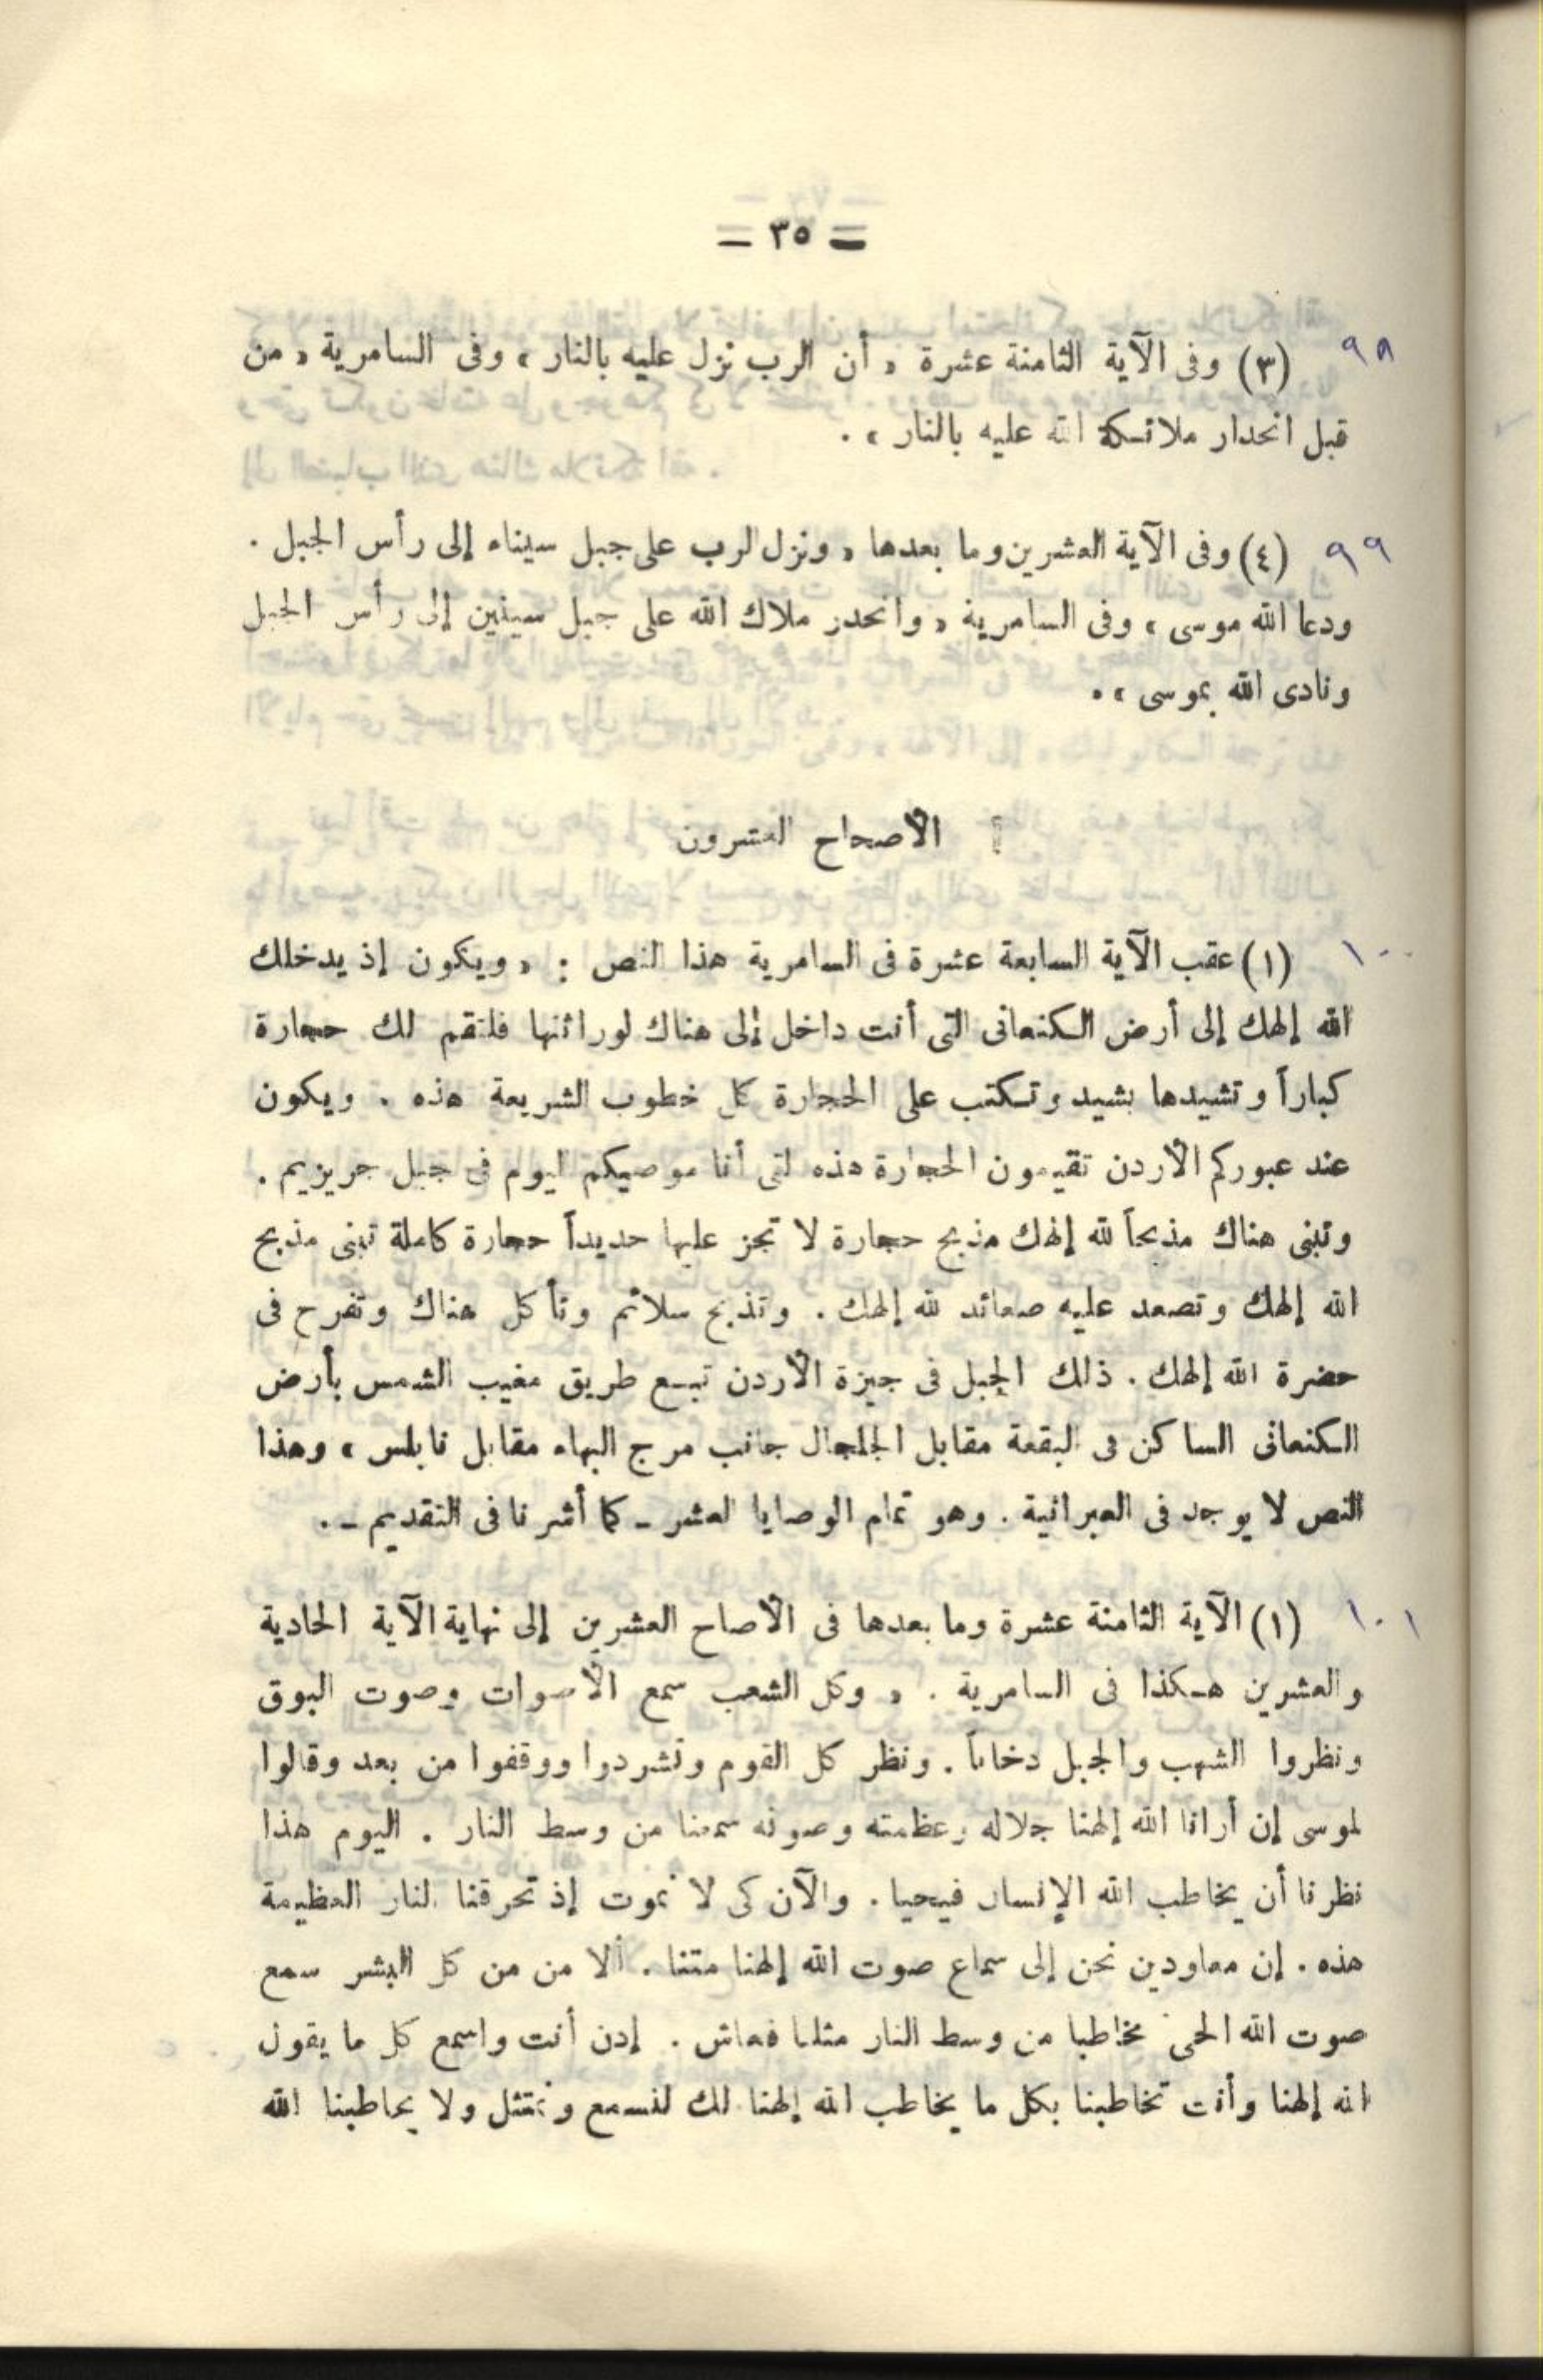 = ٣٥ =
٩٨ (٣) وفى الآية الثامنة عشرة « أن الرب نزل عليه بالنار » وفى السامرية « من
قبل انحدار ملائكة الله عليه بالنار » .
٩٩ (٤) وفى الآية العشرين وما بعدها « ونزل الرب على جبل سيناء إلى رأس الجبل .
ودعا الله موسى » وفى السامرية « وانحدر ملاك الله على جبل سينين إلى رأس الجبل
ونادى الله بموسى » .
الأصحاح العشرون
١٠٠ (١) عقب الآية السابعة عشرة فى السامرية هذا النص : « ويكون إذ يدخلك
الله إلهك إلى أرض الكنعانى التى أنت داخل إلى هناك لوراثنها فلتقم لك حجارة
كباراً وتشيدها بشيد وتكتب على الحجارة كل خطوب الشريعة هذه . ويكون
عند عبوركم الأردن تقيمون الحجارة هذه لتى أنا موصيكم اليوم فى جبل جريزيم .
وتبنى هناك مذبحاً لله إلهك مذبح حجارة لا تجز عليها حديداً حجارة كاملة تبنى مذبح
الله إلهك وتصعد عليه صعائد لله إلهك . وتذبح سلائم وتأكل هناك وتفرح فى
حضرة الله إلهك . ذلك الجبل فى جيزة الأردن تبع طريق مغيب الشمس بأرض
الكنعانى الساكن فى البقعة مقابل الجلجال جانب مرج البهاء مقابل نابلس » وهذا
النص لا يوجد فى العبرانية . وهو تمام الوصايا العشر ـ كما أشرنا فى التقديم ـ .
١٠١ (١) الآية الثامنة عشرة وما بعدها فى الأصاح العشرين إلى نهاية الآية الحادية
والعشرين هكذا فى السامرية . « وكل الشعب سمع الأصوات وصوت البوق
ونظروا الشهب والجبل دخاناً . ونظر كل القوم وتشردوا ووقفوا من بعد وقالوا
لموسى إن أرانا الله إلهنا جلاله وعظمته وصوته سمعنا من وسط النار . اليوم هذا
نظرنا أن يخاطب الله الإنسان فيحيا . والآن كى لا نموت إذ تحرقنا النار العظيمة
هذه . إن معاودين نحن إلى سماع صوت الله إلهنا متنا . ألا من من كل البشر سمع
صوت الله الحى مخاطبا من وسط النار مثلنا فعاش . إدن أنت واسمع كل ما يقول
الله إلهنا وأنت تخاطبنا بكل ما يخاطب الله إلهنا لك لنسمع ونمتثل ولا يخاطبنا الله